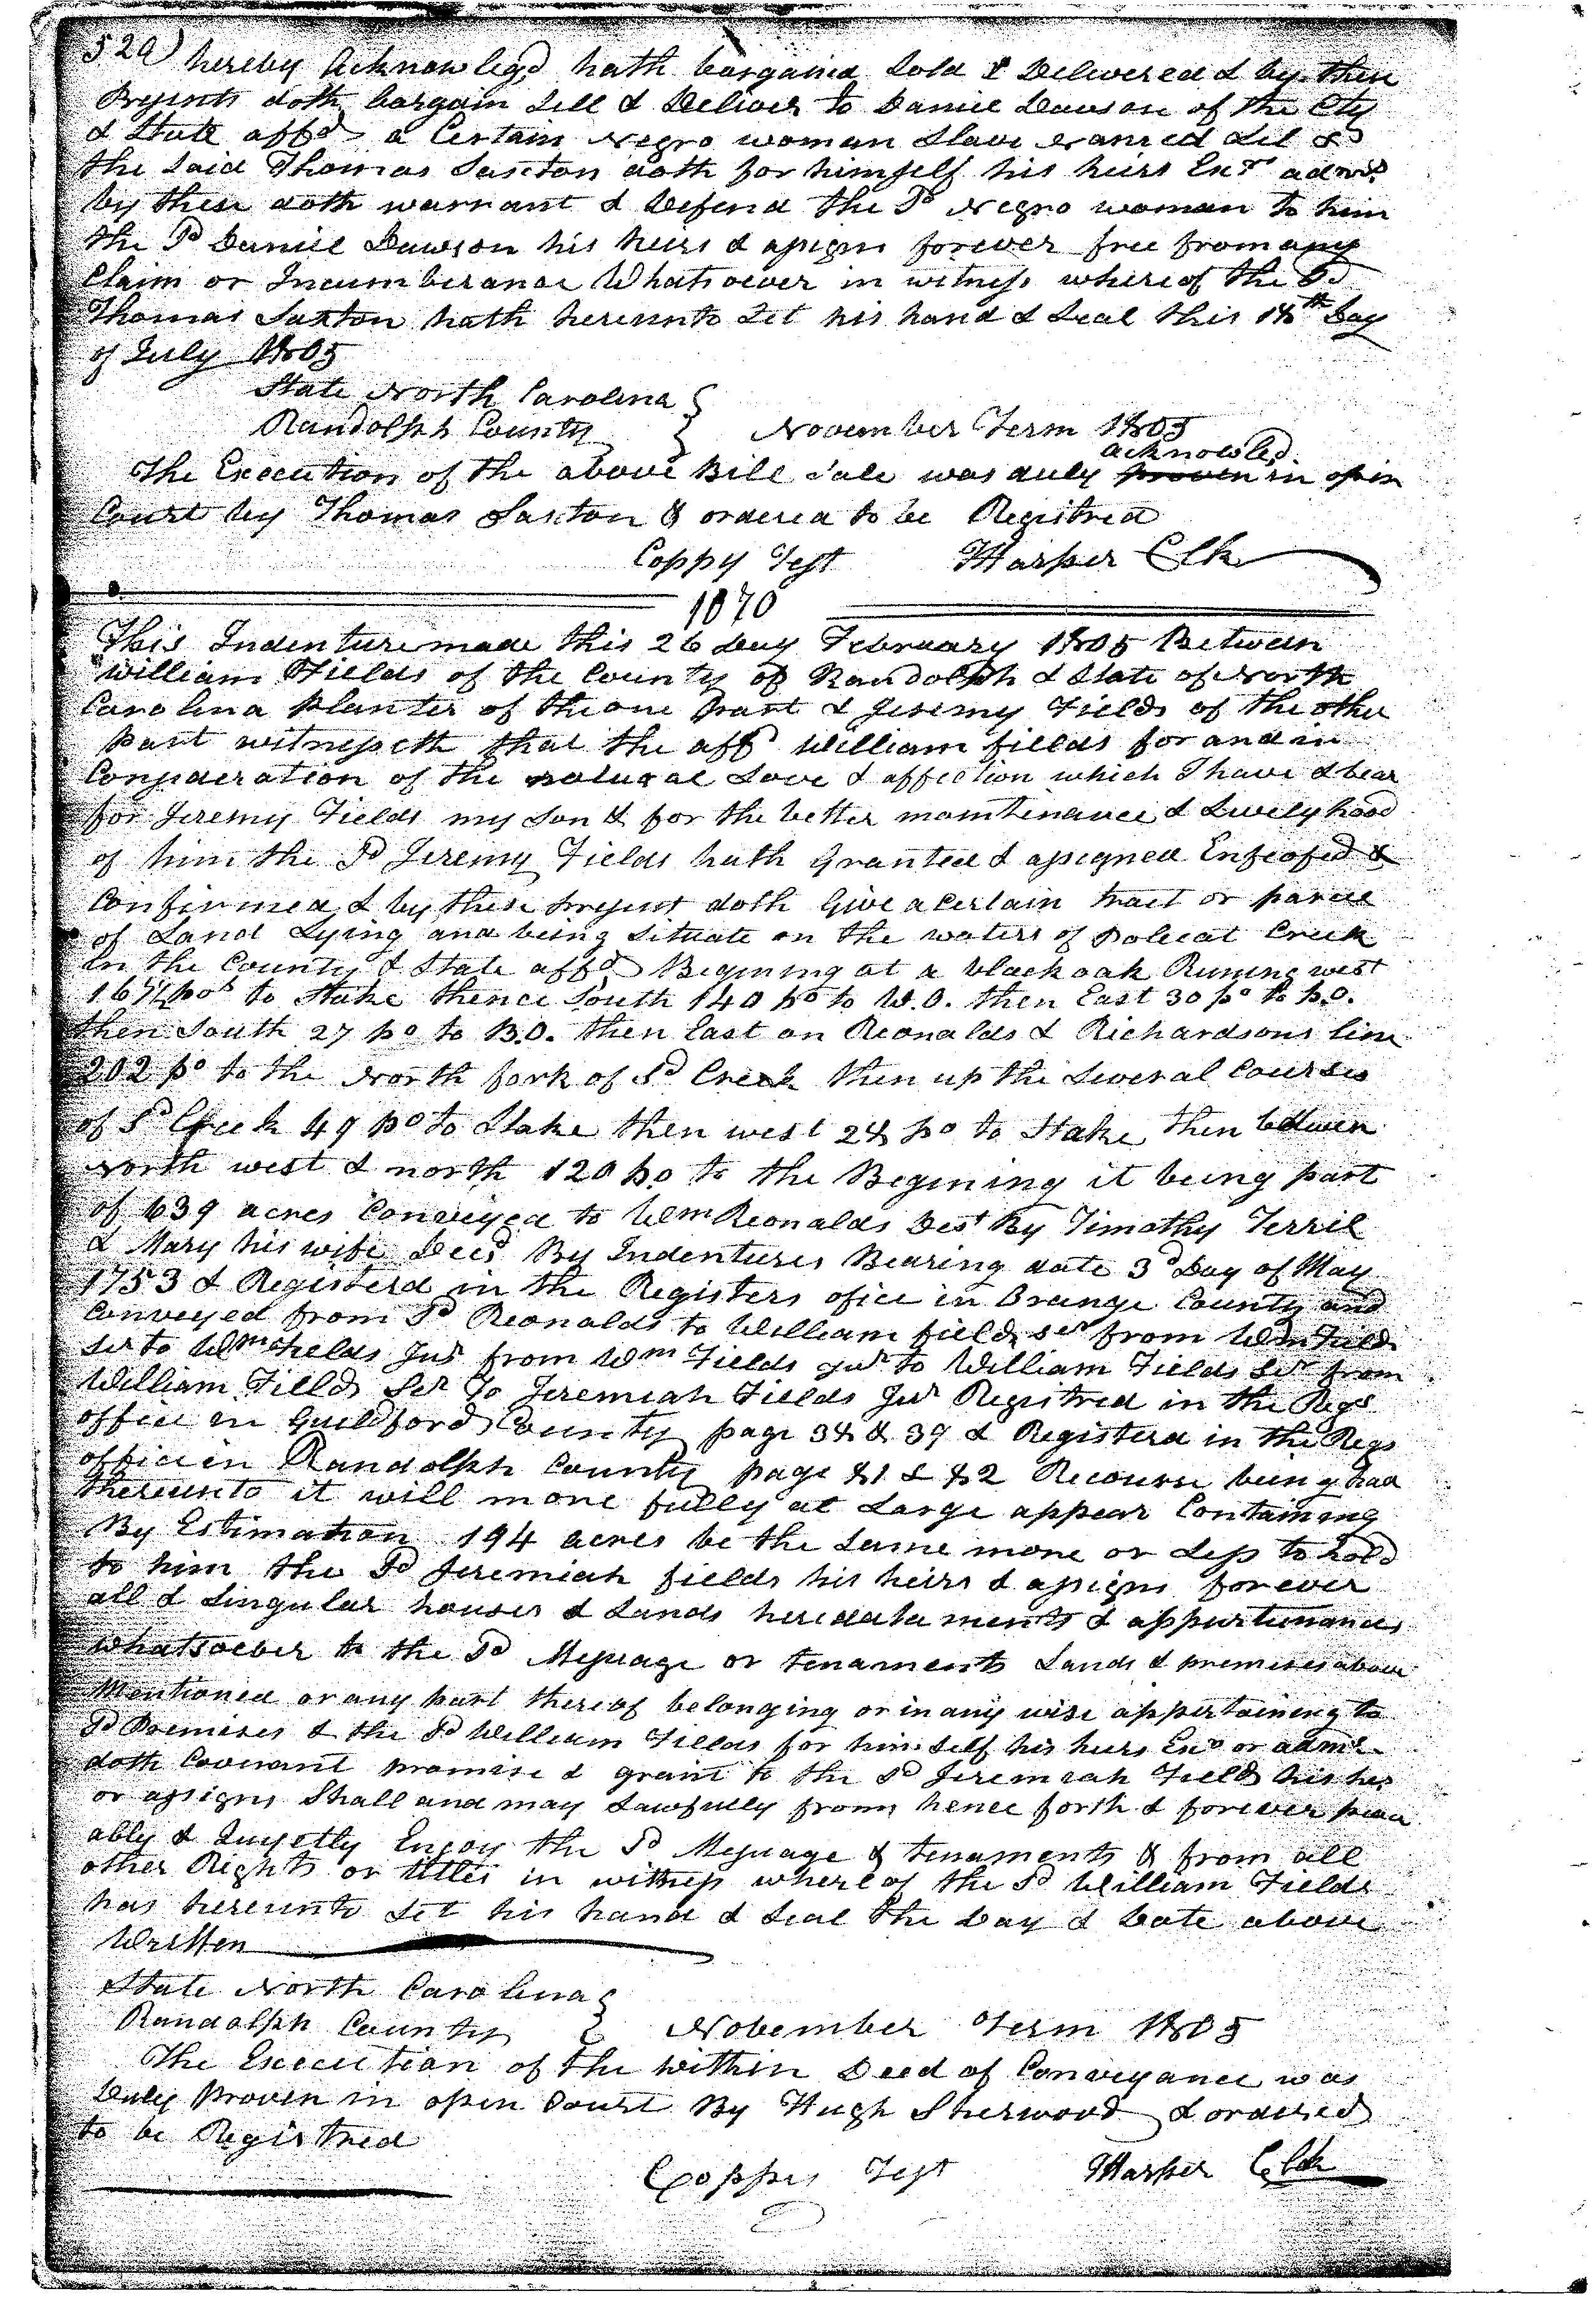 520) hereby Acknowlegd hath bargaind Sold & Delivered & by these
Presents doth bargain Sell & Deliver to Daniel Dawson of the Cty
& State affd a Certain Negro woman Slave Named Lil &
the Said Thomas Saxton doth for himself his heirs Exr admrs
by these doth warrant & Defend the Sd Negro woman to him
the Sd Daniel Dawson his heirs & assigns forever free from any
Claim or Incumberance Whatsoever in witness whereof the Sd
Thomas Saxton hath hereunto Set his hand & Seal this 18th Day
of July 1805
State North Carolina }
Randolph County } November Term 1805
acknowled.
The Execution of the above Bill Sale was duly proven in open
Court by Thomas Saxton & ordered to be Registred
Coppy Test Harper Clk
1870
This Indenture made this 26 Day February 1805 Between
William Fields of the County of Randolph & State of North
Carolina Planter of the one Part & Jeremy Fields of the other
Part witnesseth that the affd William fields for and in
Consideration of the natural Love & affection which I have & bear
for Jeremy Fields my Son & for the better maintenance & Livelyhood
of him the Sd Jeremy Fields hath Granted & assigned Enfeofed &
Confirmed & by these present doth Give a Certain tract or parcel
of Land Lying and being Situate on the waters of Polecat Creek
in the County & State affd Begining at a black oak Runing west
167½ pos to Stake thence South 140 po to W.O. then East 30 po to P.O.
then South 27 po to B.O. then East on Reonalds & Richardsons line
202 po to the North fork of Sd Creek then up the Several Courses
of Sd Creek 49 po to Stake then west 28 po to Stake then between
North west & north 120 po to the Begining it being part
of 639 acres Conveyed to Wm Reonalds Desd By Timothy Terril
& Mary his wife Decd By Indentures Bearing date 3d Day of May
1753 & Registerd in the Registers ofice in Orange County and
Conveyed from Sd Reonalds to William fields Ser from Wm Fields
Ser to Wm Fields Jur from Wm Fields Jur to William Fields Ser from
William Fields Ser to Jeremiah Fields Jur Registred in the Regs
office in Guildford County page 38 & 39 & Registerd in the Regs
office in Randolph County page 81 & 82 Recourse being had
thereunto it will more fully at Large appear Containing
By Estimation 194 acres be the Same more or Less to hold
to him the Sd Jeremiah fields his heirs & assigns forever
all & Singular houses & Lands heredataments & appurtenances
whatsoever to the Sd Mesuage or tenaments Lands & premises above
Mentioned or any part thereof belonging or in any wise appertaining to
Sd Premises & the Sd William Fields for him Self his heirs Exo or adms
doth Covenant promise & grant to the Sd Jeremiah Field his hes
or assigns Shall and may Lawfully from hence forth & forever peac
ably & Quyetly Enjoy the Sd Mesuage & tenaments & from all
other Rights or titles in witness whereof the Sd William Fields
has hereunto Set his hand & Seal the Day & Date above
Written
State North Carolina }
Randolph County } November Term 1805
The Execution of the within Deed of Conveyance was
Duly Proven in open Court By Hugh Sherwood & ordered
to be Registred
Coppy Test Harper Clk